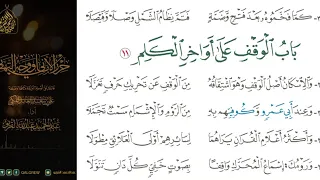 كَمَا فَخَّمُوهُ بَعْدَ فَتْحٍ وَضَمَّةٍ فَتَمَّ نِظَامُ الشَّمْلِ وَصْلًا وَفَيْصَلَا
بَابُ الْوَقْفِ عَلَىٰ أَوَاخِرِ الْكَلِمِ ١١
وَالْإِسْكَانُ أَصْلُ الْوَقْفِ وَهْوَ اشْتِقَاقُهُ مِنَ الْوَقْفِ عَنْ تَحْرِيكِ حَرْفٍ تَعَزَّلَا
وَعِنْدَ أَبِي عَمْرٍو وَكُوفِيِّهِمْ بِهِ مِنَ الرَّوْمِ وَالْإِشْمَامِ سَمْتٌ تَجَمَّلَا
وَأَكْثَرُ أَعْلَامِ الْقُرَانِ يَرَاهُمَا لِسَائِرِهِمْ أَوْلَى الْعَلَائِقِ مِطْوَلَا
وَرَوْمُكَ إِسْمَاعُ الْمُحَرَّكِ وَاقِفًا بِصَوْتٍ خَفِيٍّ كُلَّ دَانٍ تَنَوَّلَا